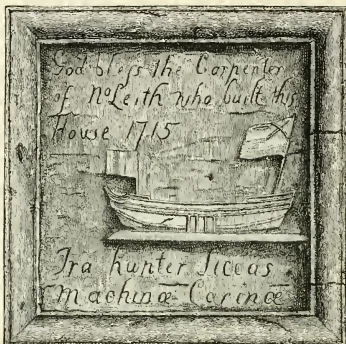 God bless the Carpenter
of No Leith who built this
House 1715
Tra hunter siccas
Machinœ Carinœ